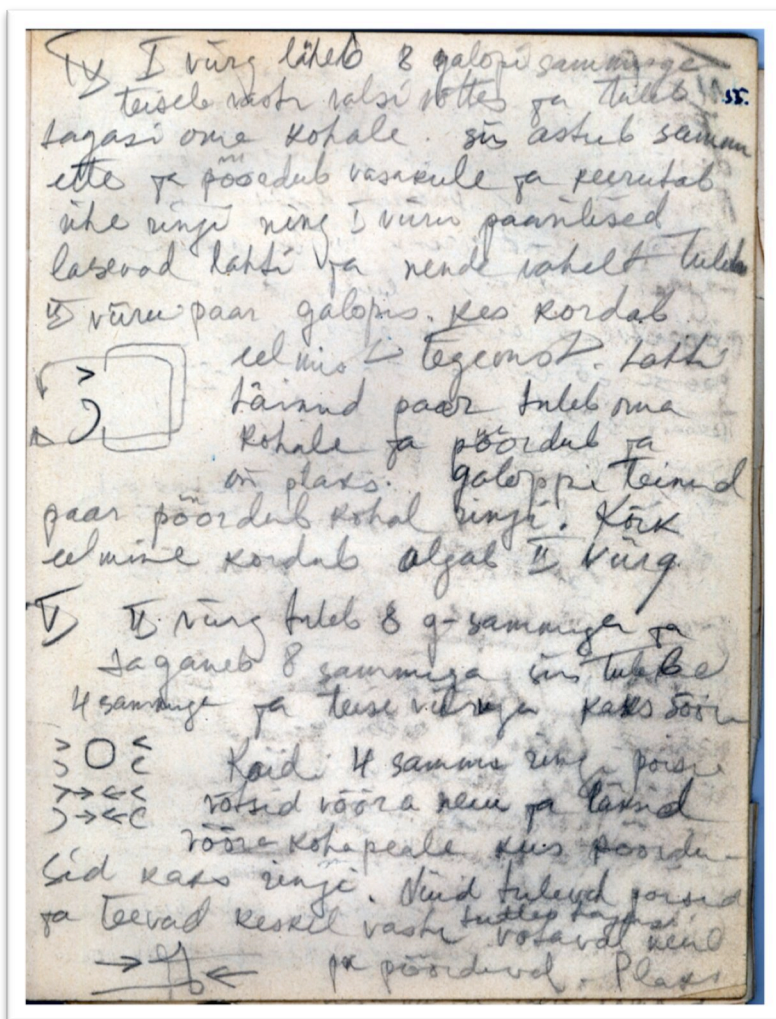 IV I virg läheb 8 galopi sammuga
55.
teisele vastu valsi võttes ja tuleb
tagasi oma kohale. siis astub sammu
ette ja pöördub vasakule ja keerutab
ühe ringi ning I viiru paarilised
lasevad lahti ja nende vahelt tuleb
II viiru paar galopis. kes kordab
eelmist tegevust. Lahti
läinud paar tuleb oma
kohale ja pöördub ja
on plaks. galoppi teinud
paar pöördub kohal ringi. Kõik
eelmine kordub algab II virg
V II virg tuleb 8 g-sammuga ja
taganeb 8 sammuga siis tullakse
4 sammuga ja teise kaks sõõri
Käidi 4 sammu ring, poisi
võtsid võõra neiu ja läksid
võõra koha peale kus pöördu-
sid kaks ringi. Nüüd tulevad poisid
ja teevad keskel vastu võtavad neiu
tagasi
pöörduvad. Plaks